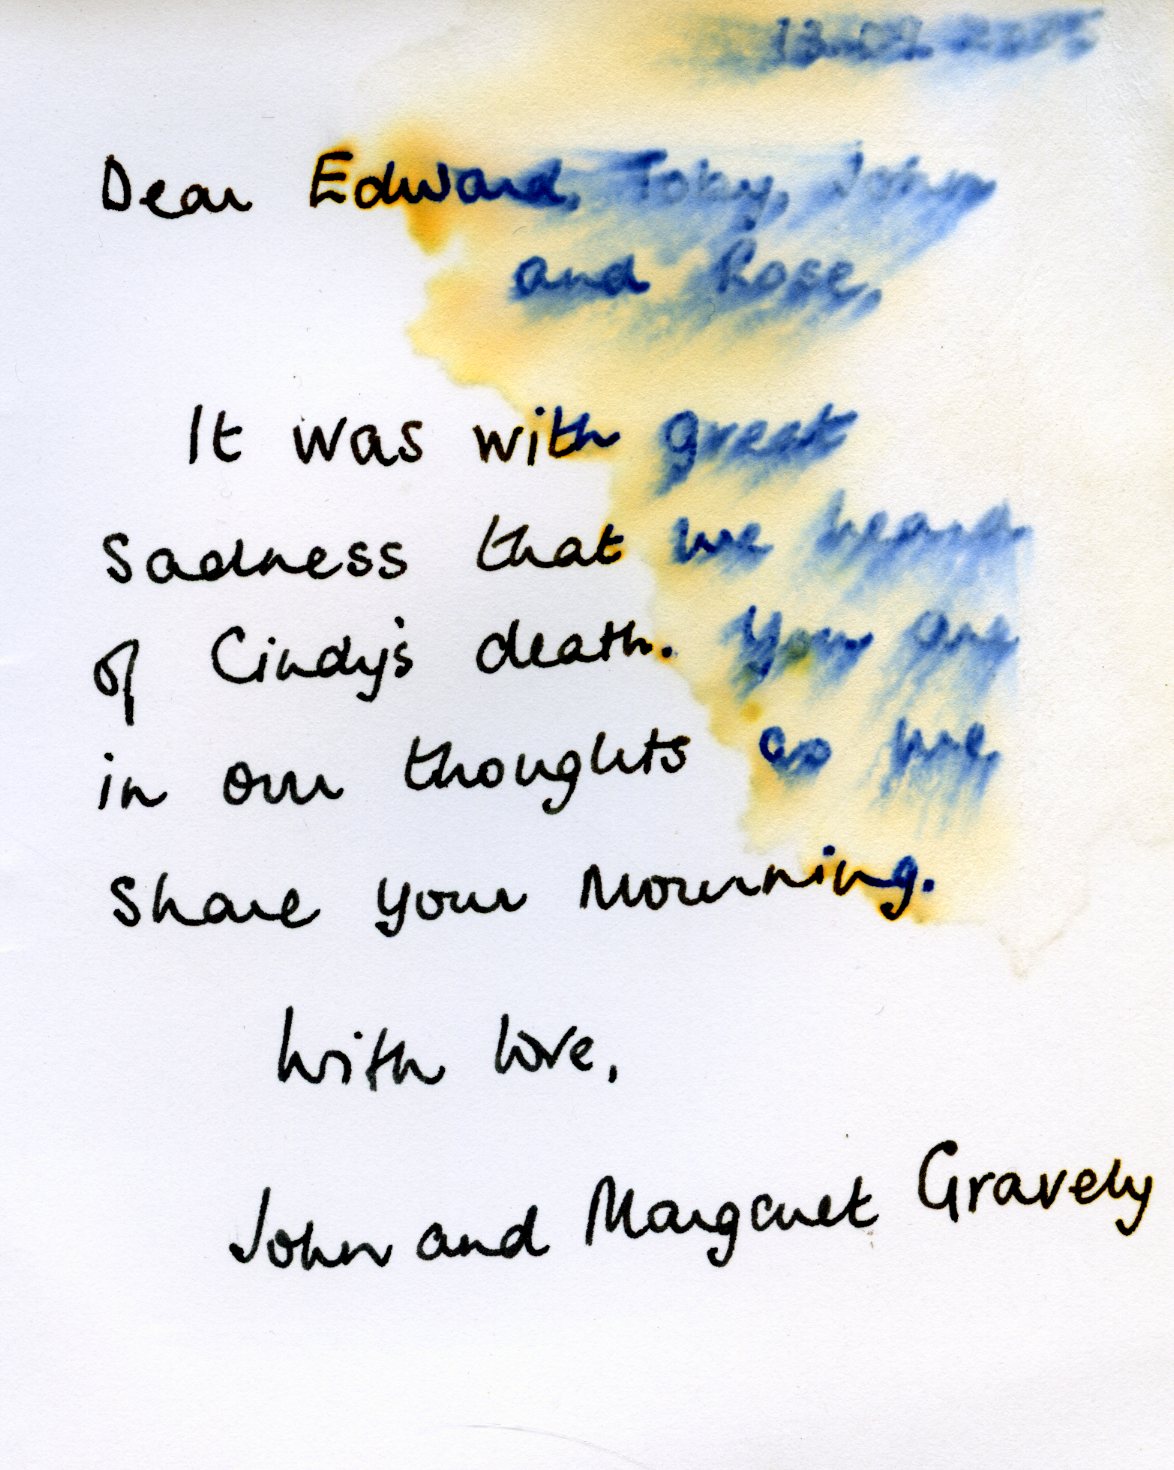 Dear Edward, Toby, John
and Rose,
It was with great
sadness that we heard
of Cindy's death. You are
in our thoughts as we
share your mourning.
With love,
John and Margaret Gravely